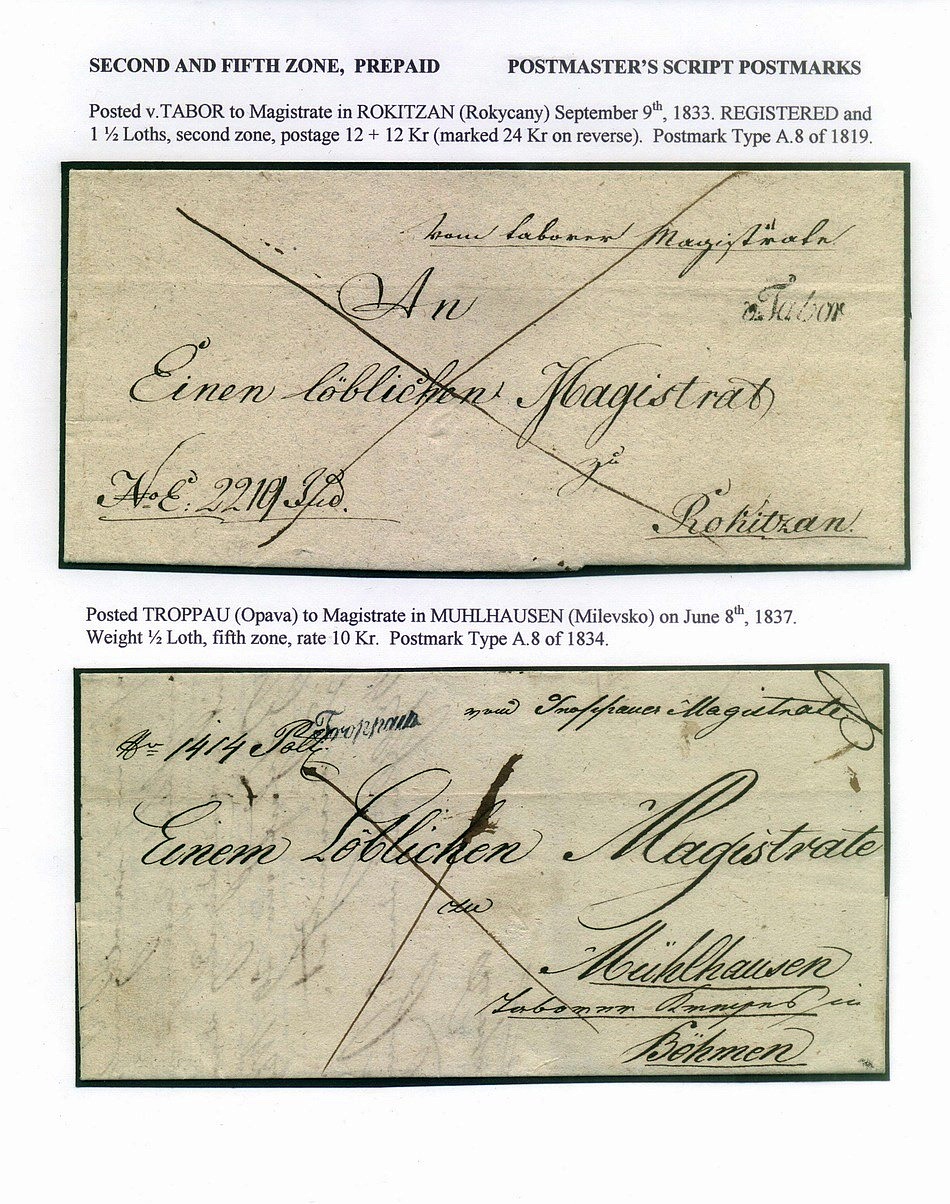 SECOND AND FIFTH ZONE, PREPAID POSTMASTER'S SCRIPT POSTMARKS
Posted v.TABOR to Magistrate in ROKITZAN (Rokycany) September 9th, 1833. REGISTERED and
1 ½ Loths, second zone, postage 12 + 12 Kr (marked 24 Kr on reverse). Postmark Type A.8 of 1819.
vom taborer Magistrate
An
v.Tabor
Einen löblichen Magistrat
zu
No E: 2219
Rokitzan.
Posted TROPPAU (Opava) to Magistrate in MUHLHAUSEN (Milevsko) on June 8th, 1837.
Weight ½ Loth, fifth zone, rate 10 Kr. Postmark Type A.8 of 1834.
vom Troppauer Magistrate
Troppau
1414
Einem Löblichen Magistrate
zu
Mühlhausen
Taborer Kreises in
Böhmen